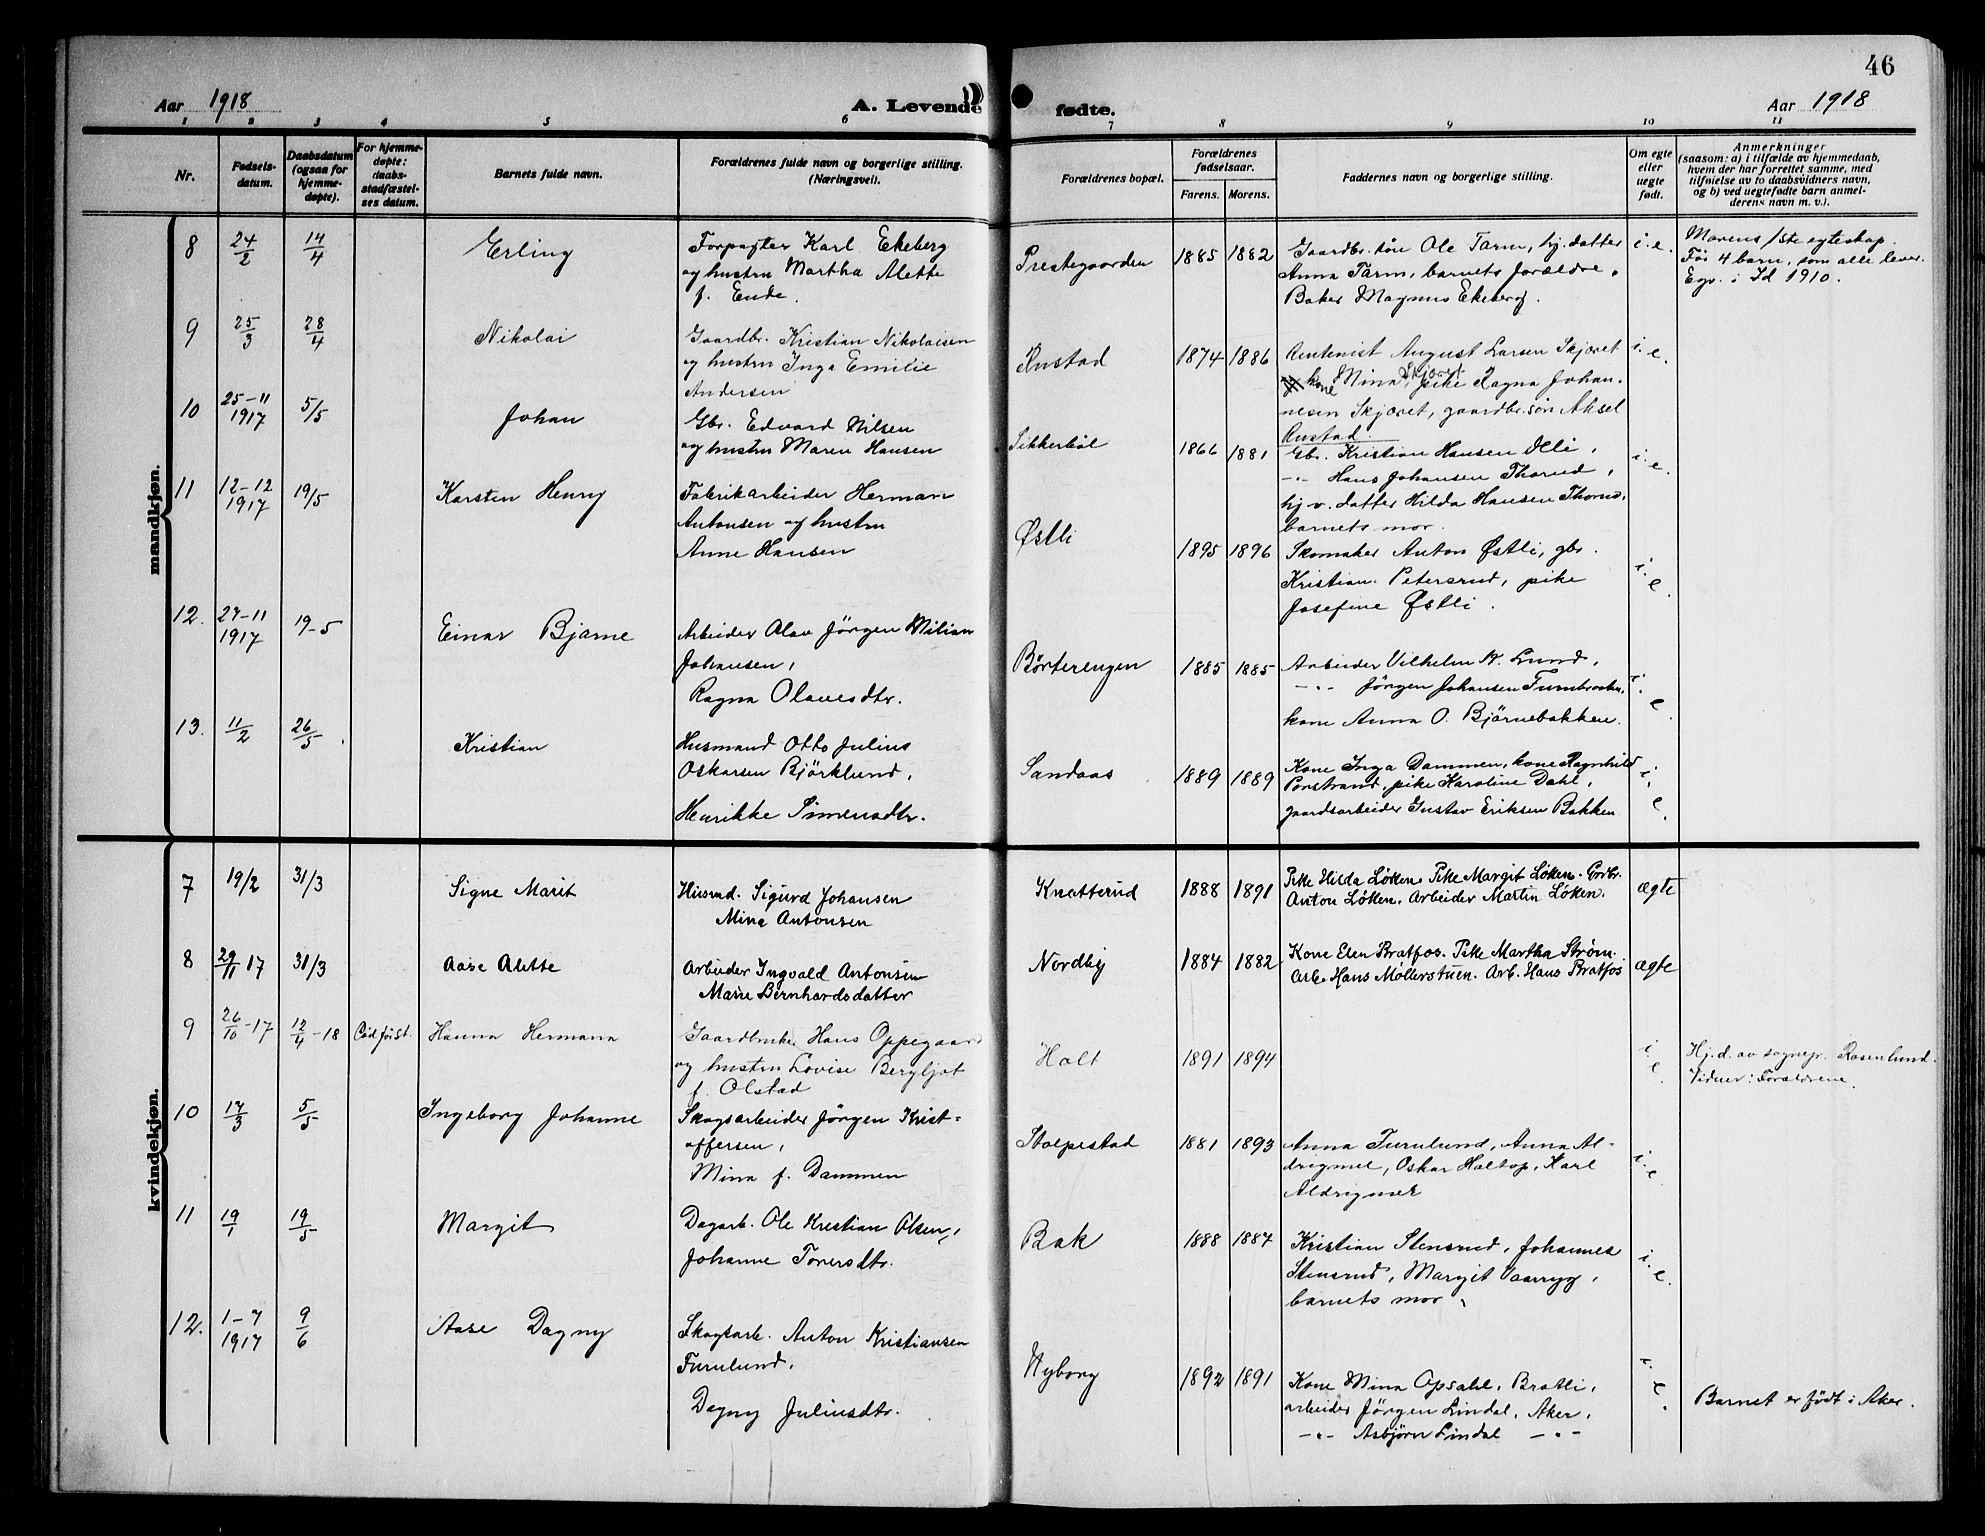 46
Aar 1918
A. Levende
fødte.
Aar 1918
1 2 3 4 5 6 7 8 9 10 11
Nr.
Fødsels-
datum.
Daabsdatum
(ogsaa for
hjemme-
døpte).
For hjemme-
døpte:
daabs-
stadfæstel-
ses datum.
Barnets fulde navn.
Forældrenes fulde navn og borgerlige stilling.
(Næringsvei).
Forældrenes bopæl.
Forældrenes
fødselsaar.
Farens. Morens.
Faddernes navn og borgerlige stilling.
Om egte
eller
uegte
født.
Anmerkninger
(saasom: a) i tilfælde av hjemmedaab,
hvem der har forrettet samme, med
tilføielse av to daabsvidners navn,
og b) ved uegtefødte barn anmel-
derens navn m. v.).
mandkjøn.
8 24/2 14/4 Erling
Forpagter Karl Ekeberg
og hustru Martha Alette
f. Ende.
Prestegaarden 1885 1882
Gaardbr. søn Ole Tarm, hj. datter
Anna Tarm, barnets forældre,
Baker Magnus Ekeberg.
i. e.
Morens 1ste egteskap.
Før 4 barn, som alle lever.
Egv. i Id 1910.
9 25/3 28/4 Nikolai
Gaardbr. Kristian Nikolaisen
og hustru Inga Emilie
Andersen
Rustad 1874 1886
Rentenist August Larsen Skjæret
kone Mina Skjæret, pike Ragna Johan-
nesen Skjæret, gaardbr. søn Aksel
Rustad.
i. e.
10 25-11 1917 5/5 Johan
Gbr. Edvard Nilsen
og hustru Maren Hansen
Sikkerbøl 1866 1881
Gbr. Kristian Hansen Deli,
-"- Hans Johansen Thorud,
hj. v. datter Hilda Hansen Thorud,
barnets mor.
i. e.
11 12-12 1917 19/5 Karsten Henry
Fabrikarbeider Herman
Antonsen og hustru
Anne Hansen
Østli 1895 1896
Skomaker Anton Østli, gbr.
Kristian Petersrud, pike
Josefine Østli.
i. e.
12. 27-11 1917 19-5 Einar Bjarne
Arbeider Olav Jörgen Milian
Johansen,
Ragna Olavesdtr.
Börterengen 1885 1885
Arbeider Vilhelm A. Lund,
-"- Jörgen Johansen Furubrothn,
kone Anna O. Björnebakken.
i. e.
13. 11/2 26/5 Kristian
Husmand Otto Julius
Oskarsen Björklund,
Henrikke Simensdtr.
Sandaas 1889 1889
Kone Inga Dammen, kone Ragnhild
Ponstrand, pike Karoline Dahl,
gaardsarbeider Gustav Eriksen Bakken
i. e.
kvindekjøn.
7 19/2 31/3 Signe Marit
Husmd. Sigurd Johansen
Mina Antonsen
Knatterud 1888 1891
Pike Hilda Løken. Pike Margit Løken. Forbr.
Anton Løken. Arbeider Martin Løken.
ægte
8 29/11 17 31/3 Aase Alette
Arbeider Ingvald Antonsen
Marie Bernhardsdatter
Nordby 1884 1882
Kone Elen Bratfos. Pike Martha Strøm.
Arb. Hans Møllerstuen. Arb. Hans Bratfos
ægte
9 26/10-17 12/4-18 Hanna Hermana
Gaardbruker Hans Oppegaard
og hustru Lovise Bergljot
f. Olstad
Holt 1891 1894
i. e.
Hj. d. av sognepr. Rosenlund.
Vidner: Forældrene.
10 17/3 5/5 Ingeborg Johanne
Skogsarbeider Jörgen Krist-
offersen,
Mina f. Dammen
Stolpestad 1881 1893
Anna Furulund, Anna Al-
drigmel, Oskar Haltop, Karl
Aldrigmer
i. e.
11 19/1 19/5 Margit
Dagarb. Ole Kristian Olsen,
Johanne Toversdtr.
Bak 1888 1887
Kristian Stensrud, Johannes
Stensrud, Margit Vaarryg,
barnets mor.
i. e.
12. 1-7 1917 9/6 Aase Dagny
Skogsarb. Anton Kristiansen
Furulund,
Dagny Juliusdtr.
Nyborg 1892 1891
Kone Mina Opsahl, Bratli,
arbeider Jörgen Lindal, Aker,
-"- Asbjørn Lindal -"-
i. e.
Barnet er født i Aker.